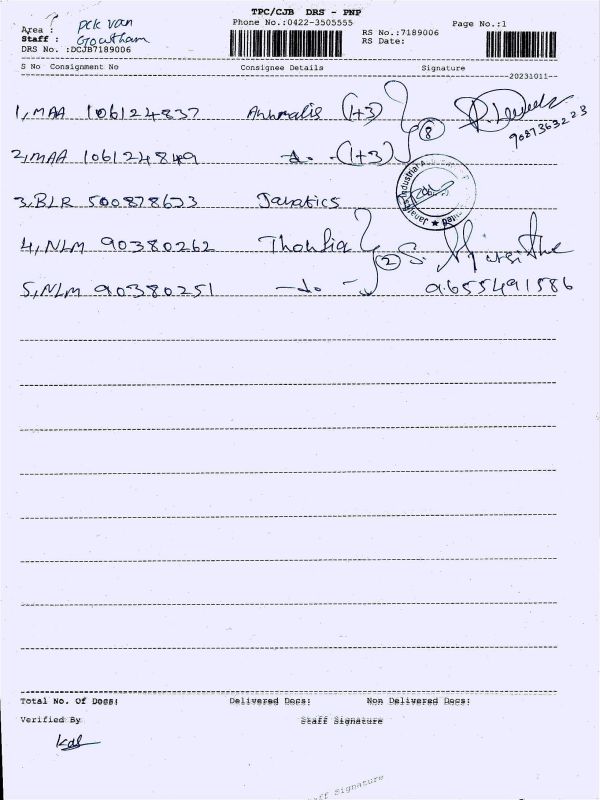 TPC/CJB DRS - PNP
Phone No.:0422-3505555
Page No.:1
Area : Pck van
Staff : Gowtham
DRS No. :DCJB7189006
RS No.:7189006
RS Date:
S No Consignment No Consignee Details Signature
20231011
1, MAA 106124837 (1+3)
8
9087363223
2, MAA 106124849 -do- (1+3)
3, BLR 500878673 Janatics
4, NLM 90380262
2
5, NLM 90380251 -do-
9655491586
Total No. Of Docs: Delivered Docs: Non Delivered Docs:
Verified By Staff Signature
Staff Signature